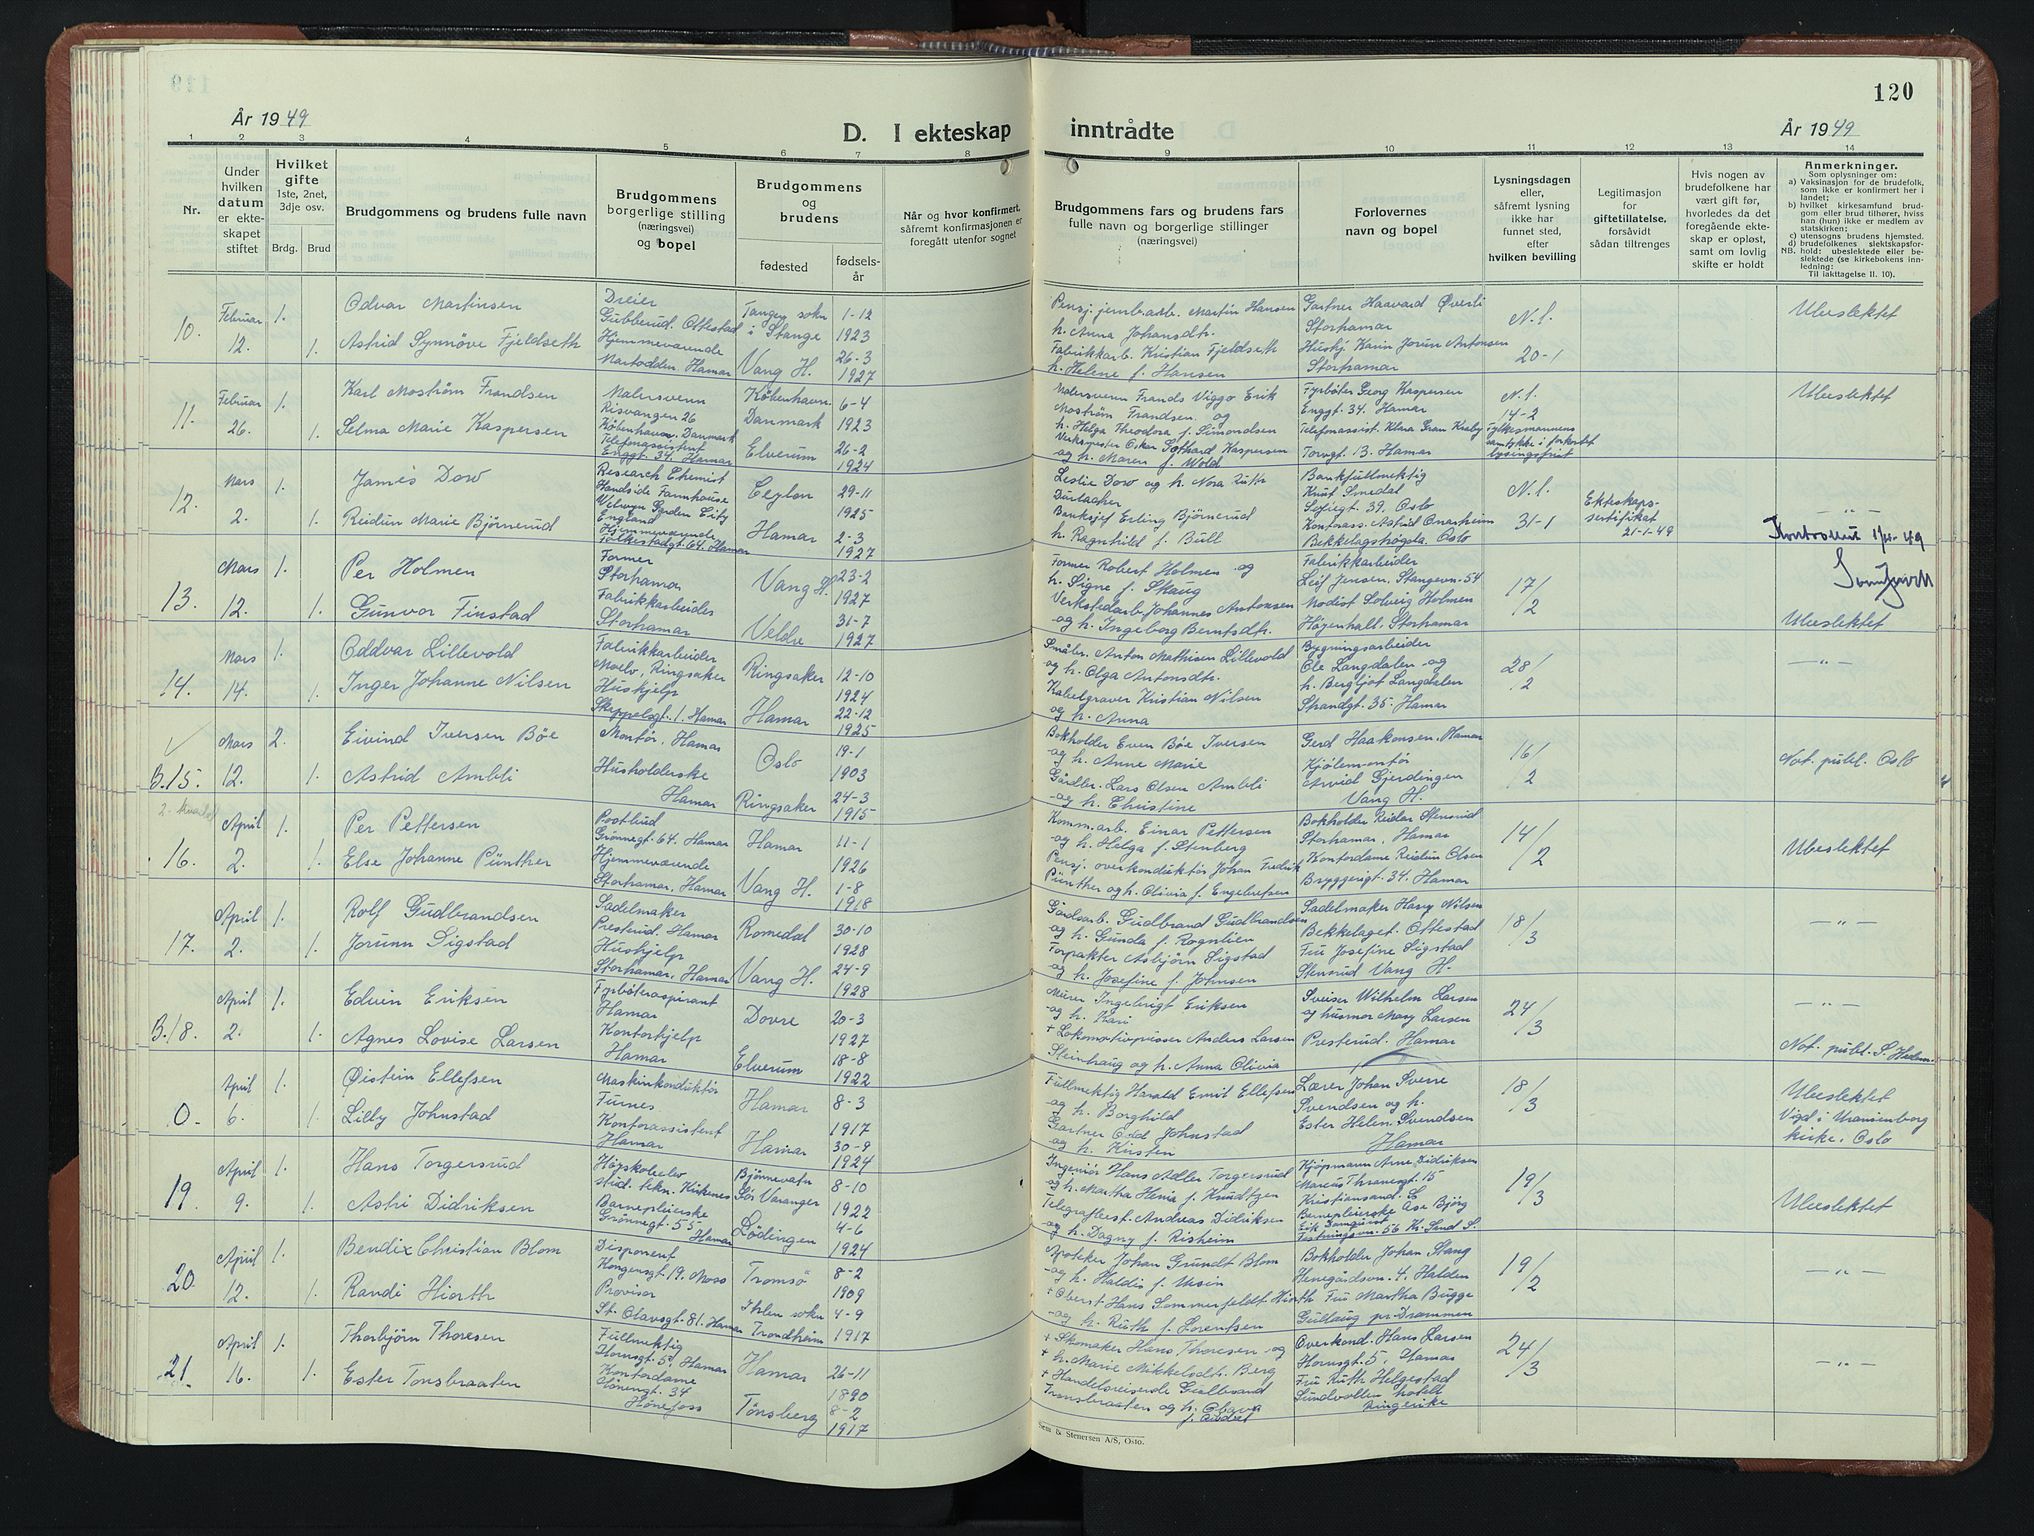 120
År 1949
D. I ekteskap inntrådte
År 1949
1 2 3 4 5 6 7 8 9 10 11 12 13 14
Nr.
Under hvilken datum er ekteskapet stiftet
Hvilket gifte 1ste, 2net, 3dje osv.
Brdg. Brud
Brudgommens og brudens fulle navn
Brudgommens borgerlige stilling (næringsvei) og bopel
Brudgommens og brudens
fødested
fødselsår
Når og hvor konfirmert, såfremt konfirmasjonen er foregått utenfor sognet
Brudgommens fars og brudens fars fulle navn og borgerlige stillinger (næringsvei)
Forlovernes navn og bopel
Lysningsdagen eller, såfremt lysning ikke har funnet sted, efter hvilken bevilling
Legitimasjon for giftetillatelse, forsåvidt sådan tiltrenges
Hvis nogen av brudefolkene har vært gift før, hvorledes da det foregående ekteskap er opløst, samt om lovlig skifte er holdt
Anmerkninger.
Som oplysninger om:
a) Vaksinasjon for de brudefolk, som ikke er konfirmert her i landet:
b) hvilket kirkesamfund brudgom eller brud tilhører, hviss han (hun) ikke er medlem av statskirken:
c) utensogns brudens hjemsted.
d) brudefolkenes slektskapsforhold: ubeslektede eller beslektede (se kirkebokens innledning:
NB.
Til iakttagelse II. 10).
10. Februar 12. 1. 1.
Odvar Martinsen
Astrid Synnøve Fjeldseth
Dreier
Gubberud. Ottestad
Hjemmeværende
Martodden, Hamar
Tangen sokn i Stange 1-12 1923
Vang H. 26-3 1927
Pensj. jernb.arb. Martin Hansen
h. Anna Johansdtr.
Fabrikkarb. Kristian Fjeldseth
h. Helene f. Hansen
Gartner Haavard Øverli
Storhamar
Hushj. Karin Jorun Antonsen
Storhamar
N.l. 20-1
Ubeslektet
11. Februar 26. 1. 1.
Karl Mostrøm Frandsen
Selma Marie Kaspersen
Malersvenn
Risvangen 26
København, Danmark
Telefonassistent
Enggt. 34. Hamar
København. Danmark 6-4 1923
Elverum 26-2 1924
Malersvenn Frands Viggo Erik
Mostrøm Frandsen og
h. Helga Theodora f. Simondsen
Verksmester Oskar Gothard Kaspersen
og h. Maren f. Wold
Fyrbøter Georg Kaspersen
Enggt. 34. Hamar
Telefonassist. Klara Gran Kraby
Torvgt. 13. Hamar
N.l. 14-2
Fylkesmannens samtykke i forkortet lysingsfrist
Ubeslektet
12. Mars 2. 1. 1.
James Dow
Reidun Marie Bjørnerud
Research Chemist
Handside Farmhouse
Welwyn Garden City
England
Hjemmeværende
Falkestadgt. 64. Hamar
Ceylon 29-11 1925
Hamar 2-3 1927
Leslie Dow og h. Nora Ruth
Durlacher
Banksjef Erling Bjørnerud
h. Ragnhild f. Bull
Bankfullmektig
Knut Smedal
Sofiegt. 39. Oslo
Kontorass. Astrid Onarheim
Bekkelagshøgda. Oslo
N.l. 31-1
Ekteskapssertifikat 21-1-49
— " —
Kontrollert 1/4-49
13. Mars 12. 1. 1.
Per Holmen
Gunvor Finstad
Former
Storhamar
Fabrikkarbeider
Storhamar
Vang H. 23-2 1927
Veldre 31-7 1927
Former Robert Holmen og
h. Signe f. Skaug
Verkstedarb. Johannes Antonsen
og h. Ingeborg Berntsdtr.
Fabrikkarbeider
Leif Jensen, Stangevn. 54
Modist Solveig Holmen
Høyenhall, Storhamar
17/2
Ubeslektet
14. Mars 14. 1. 1.
Oddvar Lillevold
Inger Johanne Nilsen
Fabrikkarbeider
Moelv, Ringsaker
Hushjelp
Skappelsgt. 1. Hamar
Ringsaker 12-10 1924
Hamar 22-12 1925
Småbr. Anton Mathisen Lillevold
og h. Olga Antonsdtr.
Kabelgraver Kristian Nilsen
og h. Anna
Bygningsarbeider
Ole Langdalen og
h. Bergljot Langdalen
Strandgt. 35. Hamar
28/2
— " —
B.15. Mars 12. 2. 1.
Eivind Iversen Bøe
Astrid Ambli
Montør, Hamar
Husholderske
Hamar
Oslo 19-1 1903
Ringsaker 24-3 1915
Bokholder Even Bøe Iversen
og h. Anne Marie
Gårdbr. Lars Olsen Ambli
og h. Christine
Gerd Haakonsen, Hamar
Kjølemontør
Arvid Gjerdingen
Vang H.
16/2
Not. publ. Oslo
2. kvartal
16. April 2. 1. 1.
Per Pettersen
Else Johanne Pünther
Postbud
Grønnegt. 64. Hamar
Hjemmeværende
Storhamar, Hamar
Hamar 11-1 1926
Vang H. 1-8 1918
Komm.arb. Einar Pettersen
og h. Helga f. Stenberg
Pensj. overkonduktør Johan Fredrik
Pünther og h. Olivia f. Engebretsen
Bokholder Reidar Stensrud
Storhamar, Hamar
Kontordame Reidun Olsen
Bryggerigt. 34. Hamar
14/2
Ubeslektet
17. April 2. 1. 1.
Rolf Gudbrandsen
Jorunn Sigstad
Sadelmaker
Presterud. Hamar
Hushjelp
Storhamar, Hamar
Romedal 30-10 1928
Vang H. 24-9 1928
Gårdsarb. Gudbrand Gudbrandsen
og h. Gunda f. Rognlien
Forpakter Asbjørn Sigstad
og h. Josefine f. Johnsen
Sadelmaker Harry Nilsen
Bekkelaget. Ottestad
Fru Josefine Sigstad
Stensrud Vang H.
18/3
— " —
B.18. April 2. 1. 1.
Edvin Eriksen
Agnes Lovise Larsen
Fyrbøteraspirant
Hamar
Kontorhjelp
Hamar
Dovre 20-3 1927
Elverum 18-8 1922
Murer Ingebrigt Eriksen
og h. Kari
+ Lokomotivpusser Anders Larsen
Steinhaug og h. Anna Olivia
Sveiser Wilhelm Larsen
og husmor Mary Larsen
Presterud. Hamar
24/3
— " —
Not. publ. S. Hedm.
0. April 6. 1. 1.
Øistein Ellefsen
Lilly Johnstad
Maskinkonduktør
Furnes
Kontorassistent
Hamar
Hamar 8-3 1917
Hamar 30-9 1924
Fullmektig Harald Emil Ellefsen
og h. Borghild
Gartner Odd Johnstad
og h. Kirsten
Lærer Johan Sverre
Svendsen og h.
Ester Helen Svendsen
Hamar
18/3
Ubeslektet
Vigd i Uranienborg
kirke. Oslo
19. April 9. 1. 1.
Hans Torgersrud
Astri Didriksen
Høyskoleelev
stud. tekn. Kirkenes
Barnepleierske
Grønnegt. 55 Hamar
Bjørnevatn Sør Varanger 8-10 1922
Lødingen 4-6 1924
Ingeniør Hans Adler Torgersrud
og h. Martha Henia f. Knudtzen
Telegrafbest. Andreas Didriksen
og h. Dagny f. Risheim
Kjøpmann Arne Didriksen
Marcus Thranesgt. 15
Kristiansand. S.
Barnepleierske Åse Bjørg
Festningsvn. 56 Kr. Sand S.
19/3
Ubeslektet
20. April 12. 1. 1.
Bendix Christian Blom
Randi Hiorth
Disponent
Kongensgt. 19. Moss
Provisor
St. Olavsgt. 81. Hamar
Tromsø 8-2 1909
Ihlen sokn Trondheim 4-9 1917
Apoteker Johan Grundt Blom
og h. Haldis f. Ursin
+ Oberst Hans Sommerfeldt Hiorth
og h. Ruth f. Lorentsen
Bokholder Johan Stang
Henegårdsvn. 4. Halden
Fru Martha Bugge
Gullaug pr. Drammen
19/2
— " —
21. April 16. 1. 1.
Thorbjørn Thoresen
Ester Tonsbraaten
Fullmektig
Hornsgt. 5, Hamar
Kontordame
Hønengt. 34
Hønefoss
Hamar 26-11 1890
Tønsberg 8-2 1917
+ Skomaker Hans Thoresen og
+ h. Marie Mikkelsdt. Berg
+ Handelsreisende Gullbrand
Tronsbraaten og h. Olava
Overkond. Hans Larsen
Hornsgt. 5, Hamar
Fru Ruth Helgestad
Sundvollen hotell
Ringerike
24/3
— " —
Sem & Stenersen A/S, Oslo.